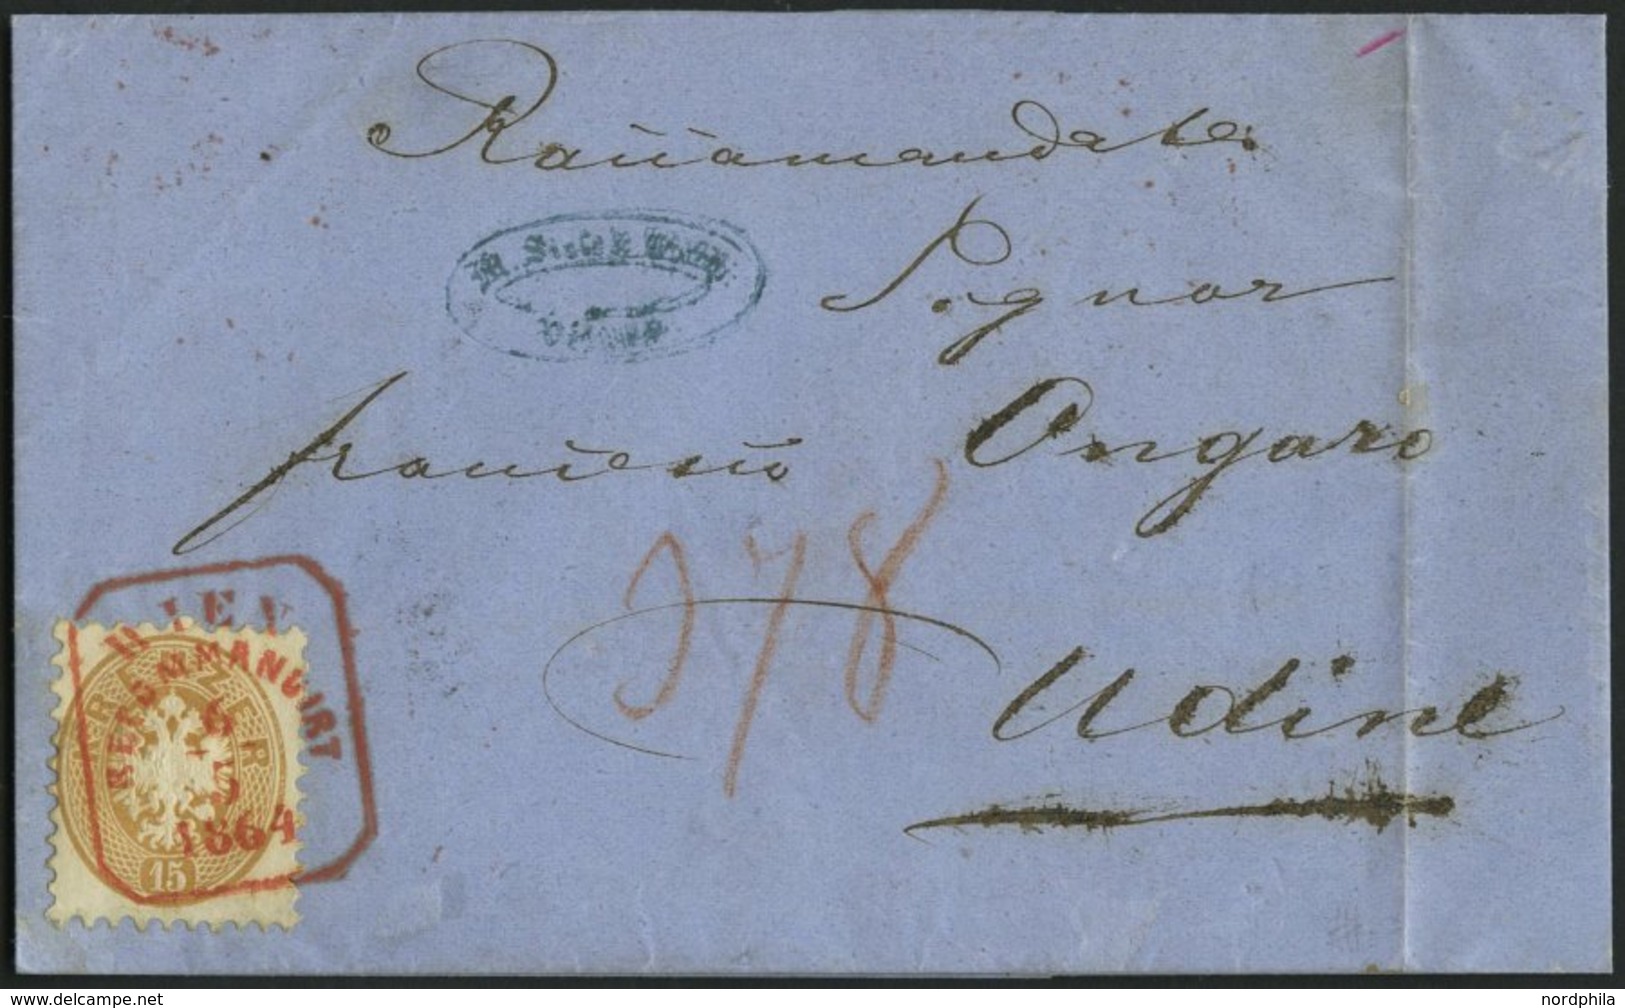 Raccomandata
Signor
francesco Ongaro
378
Udine
WIEN
RECOMMANDIRT
6
5
1864
KREUZER
15
delcampe.net
nordphila